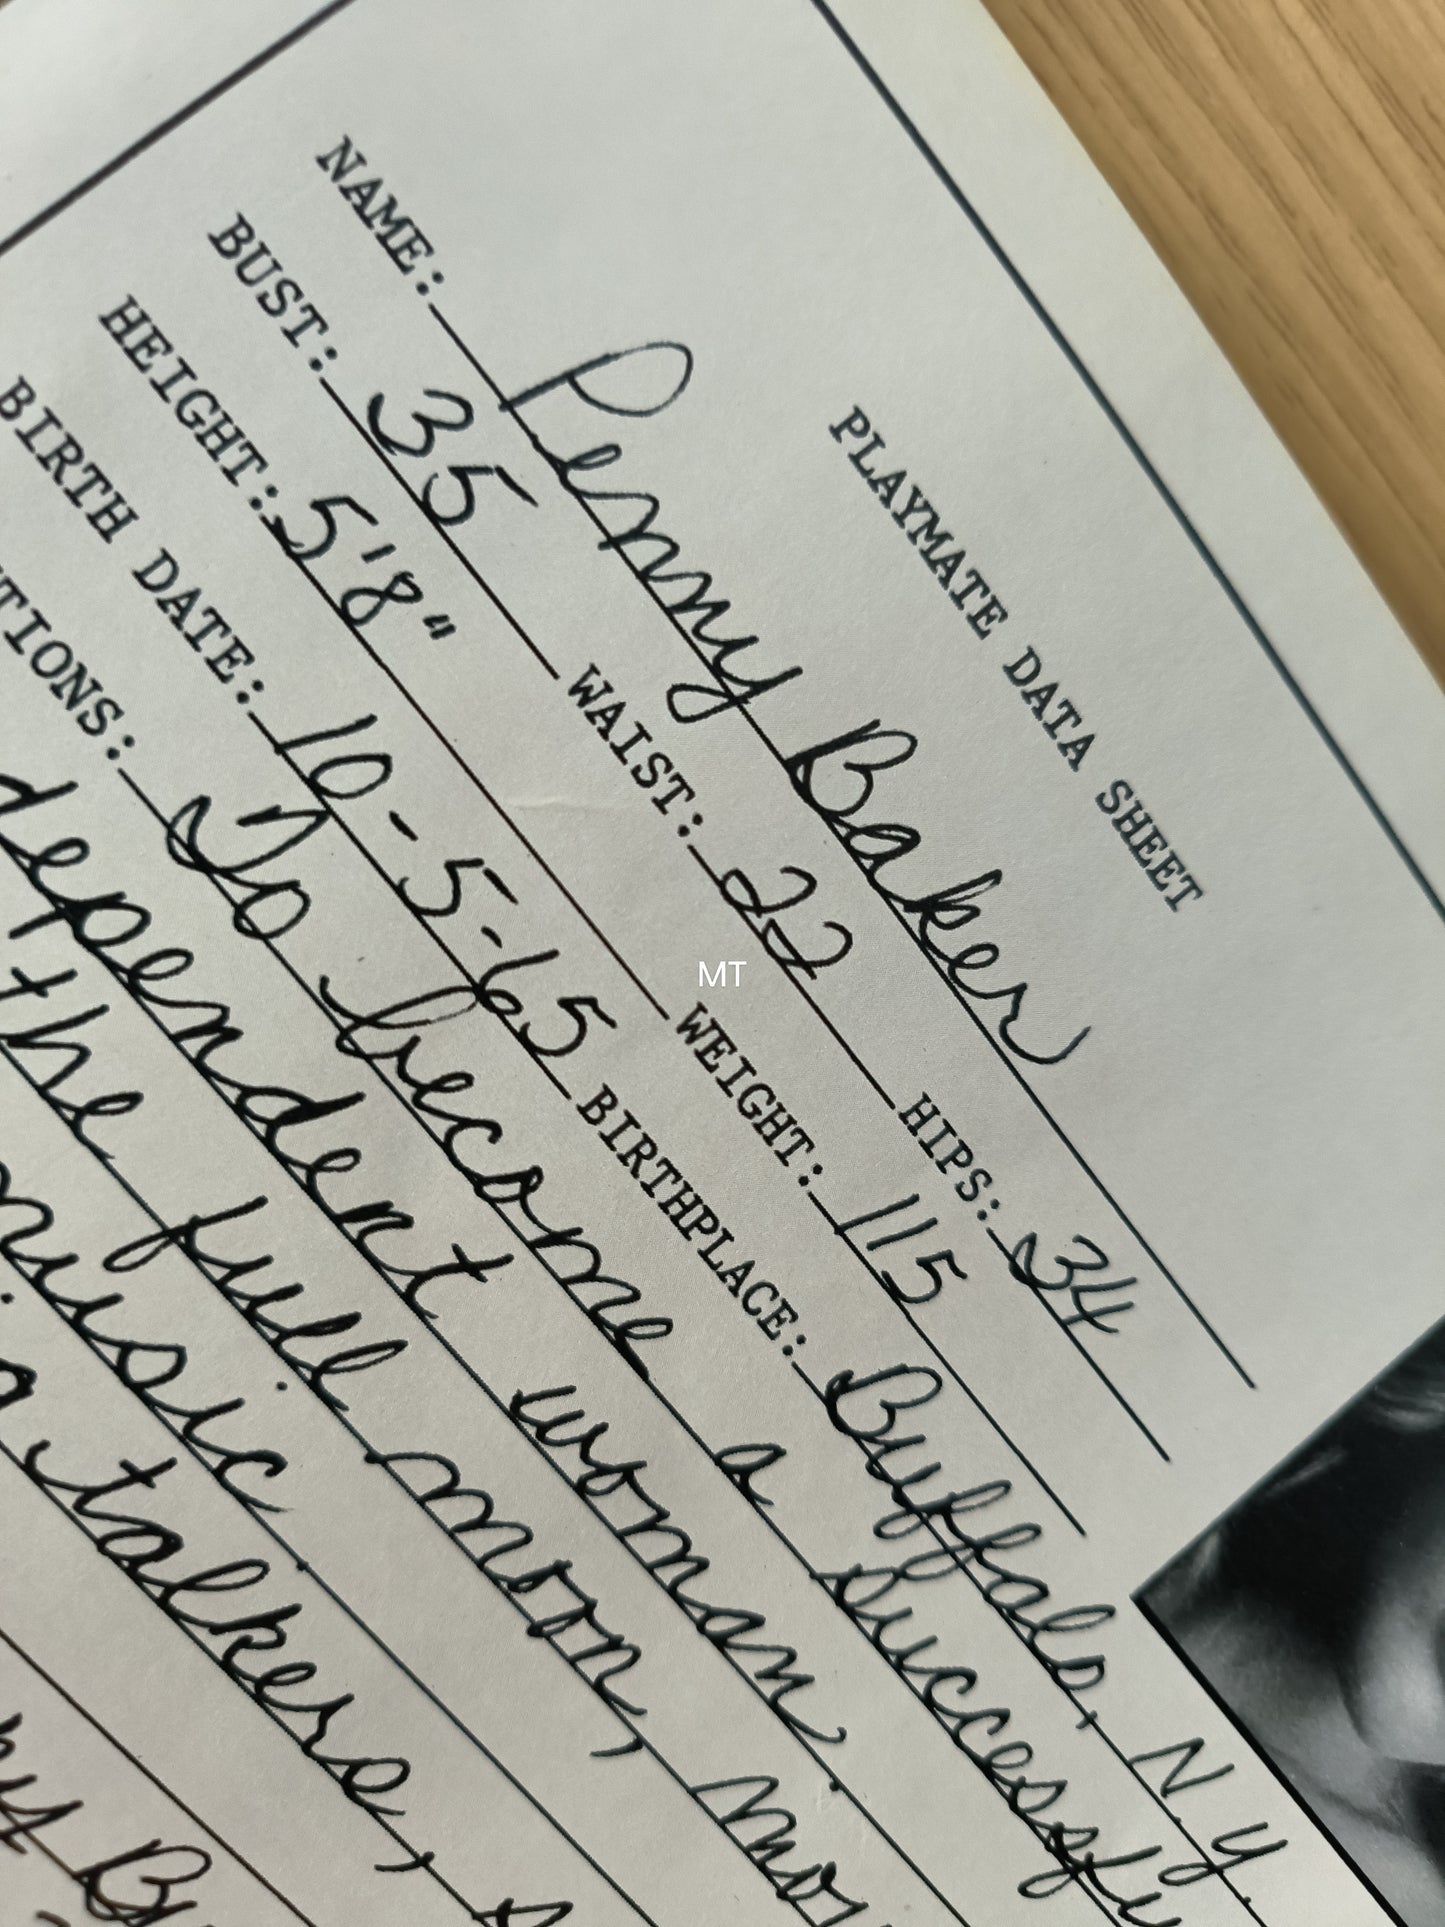 PLAYMATE DATA SHEET
NAME: Penny Baker
BUST: 35 WAIST: 22 HIPS: 34
HEIGHT: 5'8" WEIGHT: 115
BIRTH DATE: 10-5-65 BIRTHPLACE: Buffalo, N.Y.
TIONS: To become a successfu
dependent woman.
the full moon, mo
music
talkers,
MT